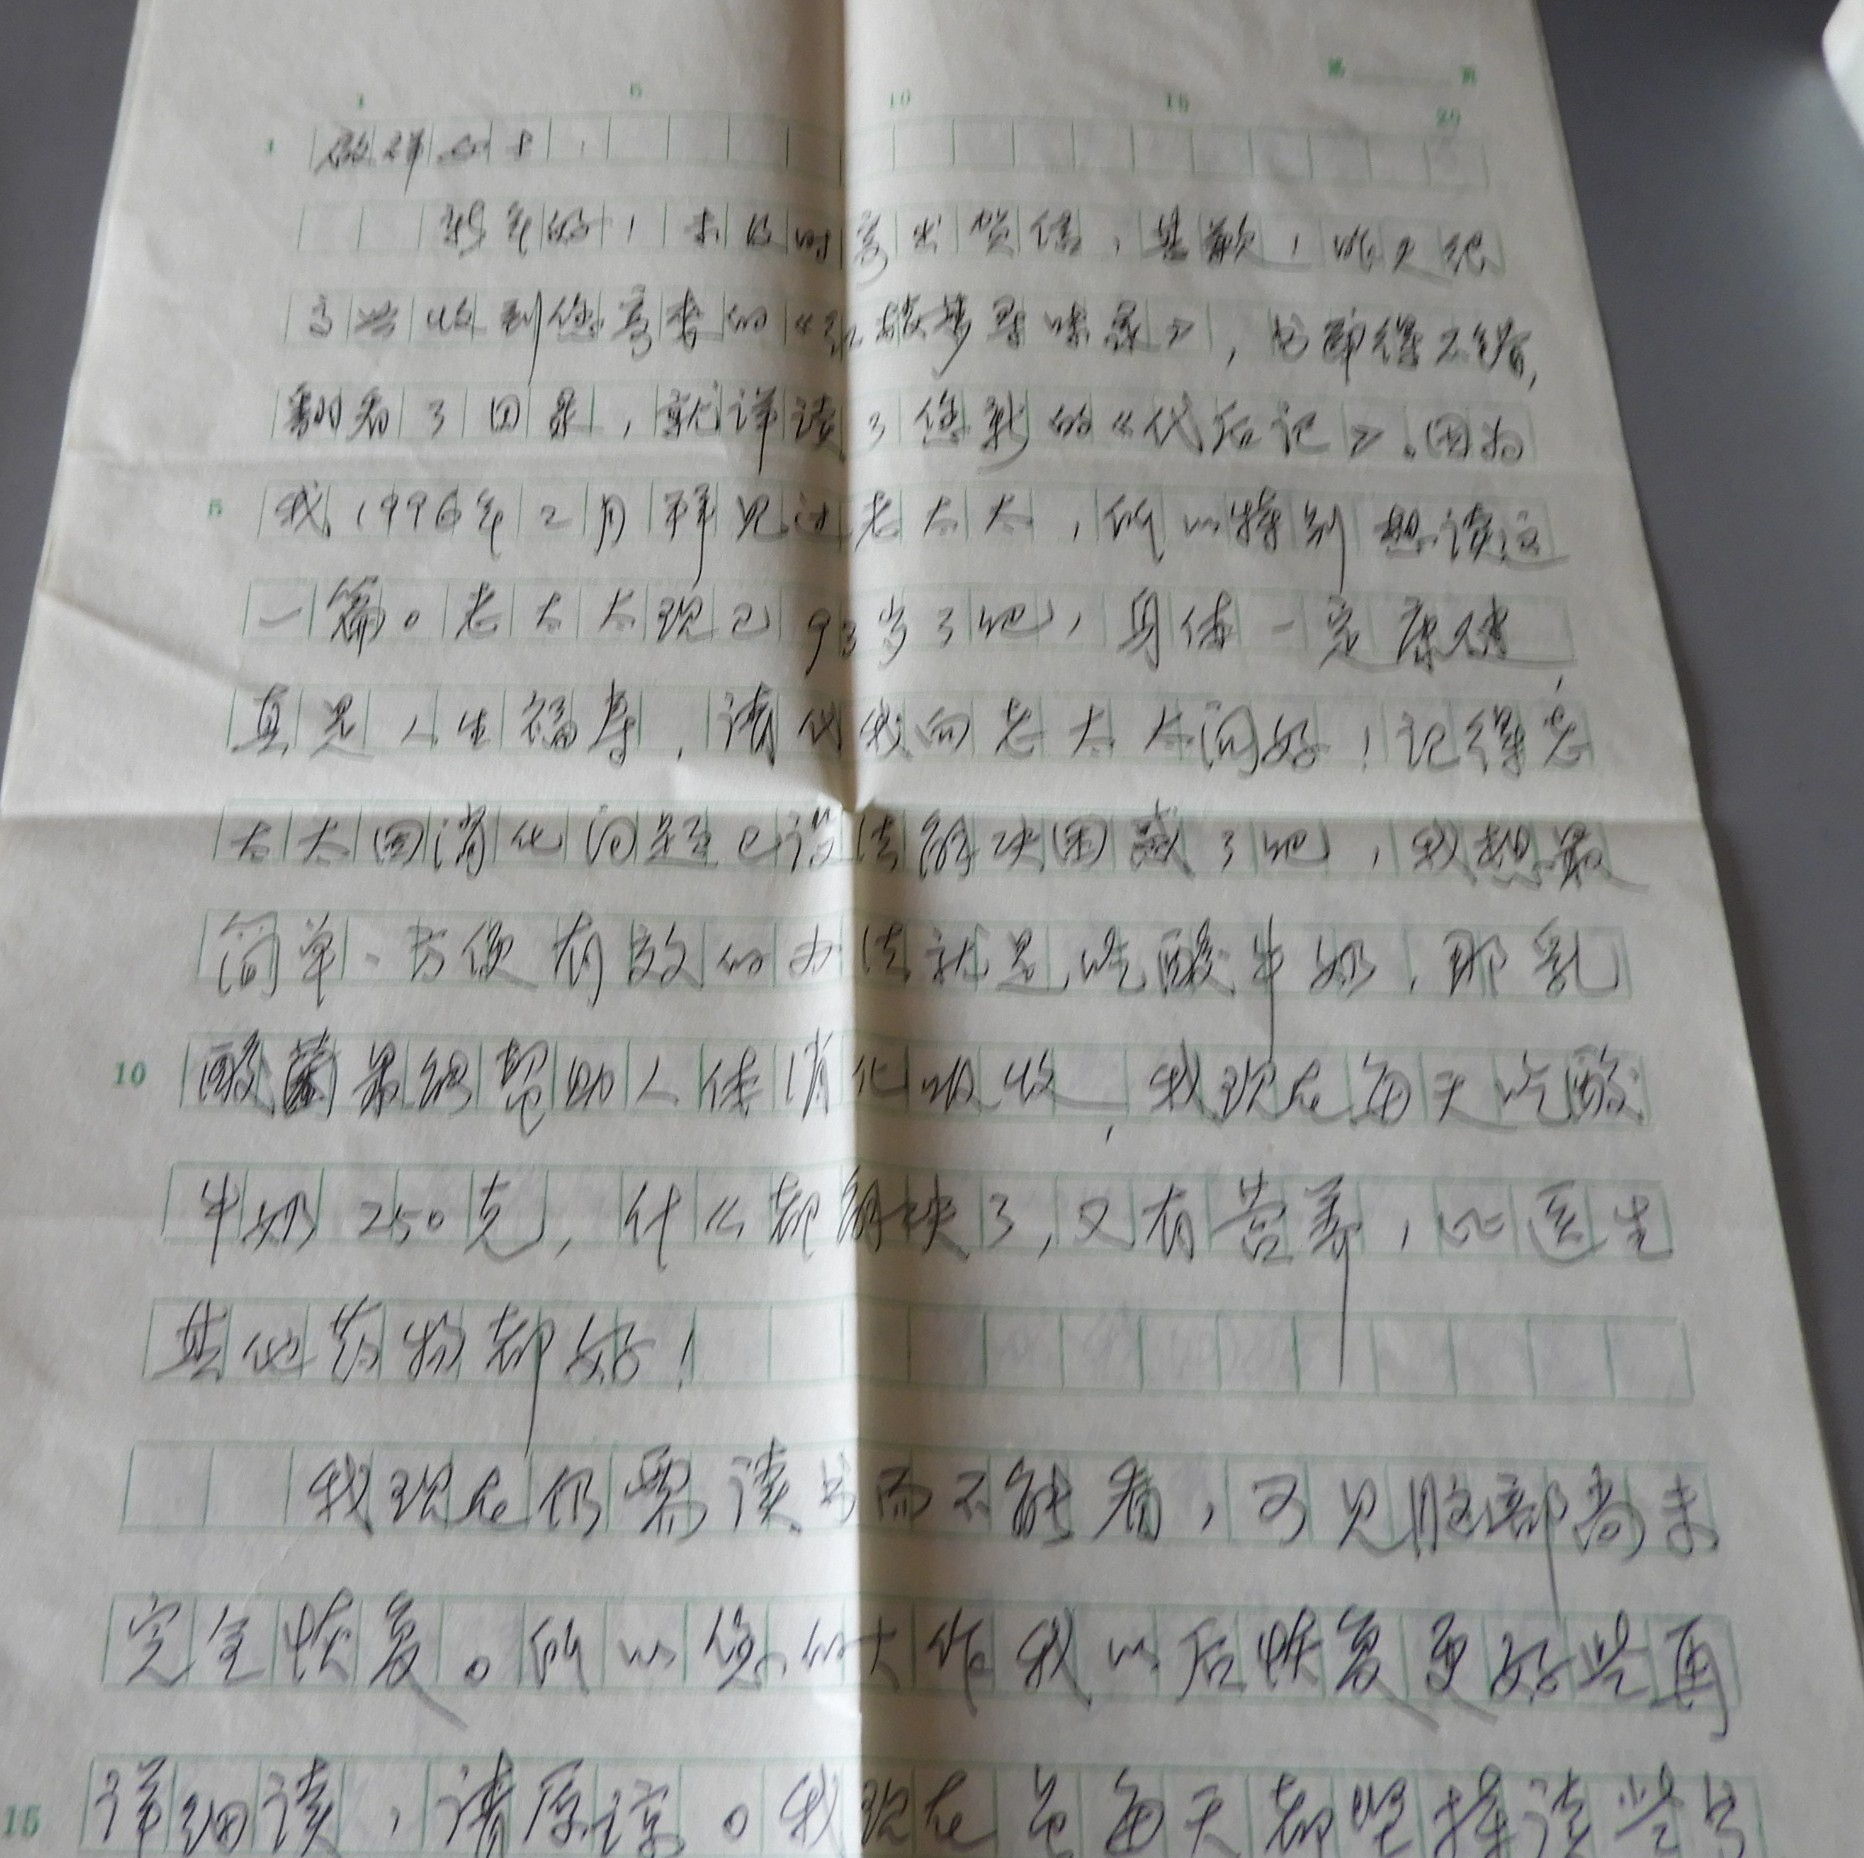 第 页
1 5 10 15 20
1 女士:
新年好!未及时寄出贺信,甚歉!昨天很
高兴收到您寄来的《红楼梦寻味录》,书印得不错,
翻看了目录,就详读了您新的《代后记》。因为
5 我1996年2月拜见过老太太,所以特别想读这
一篇。老太太现已93岁了吧,身体一定康健,
真是人生福寿,请代我向老太太问好!记得老
太太因消化问题已设法解决困惑了吧,我想最
简单、方便有效的办法就是吃酸牛奶,那乳
10 酸菌最能帮助人体消化吸收,我现在每天吃酸
牛奶250克,什么都解决了,又有营养,比医生
其他药物都好!
我现在仍需读书而不能看,可见脑部尚未
完全恢复。所以您的大作我以后恢复更好些再
15 详细读,请原谅。我现在是每天都坚持读些书